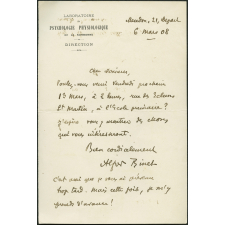 LABORATOIRE
DE
PSYCHOLOGIE PHYSIOLOGIQUE
DE LA SORBONNE
DIRECTION
Meudon, 21,
6 Mars 08
Cher Monsieur,
Voulez-vous venir Vendredi prochain
13 Mars, à 2 heures, rue des Écluses
St Martin, à l'école primaire?
J'espère vous y montrer des choses
qui vous intéresseront.
Bien cordialement
Alfred Binet
C'est avec que je vous ai prévenu
trop tard. Mais cette fois, je m'y
prends d'avance!